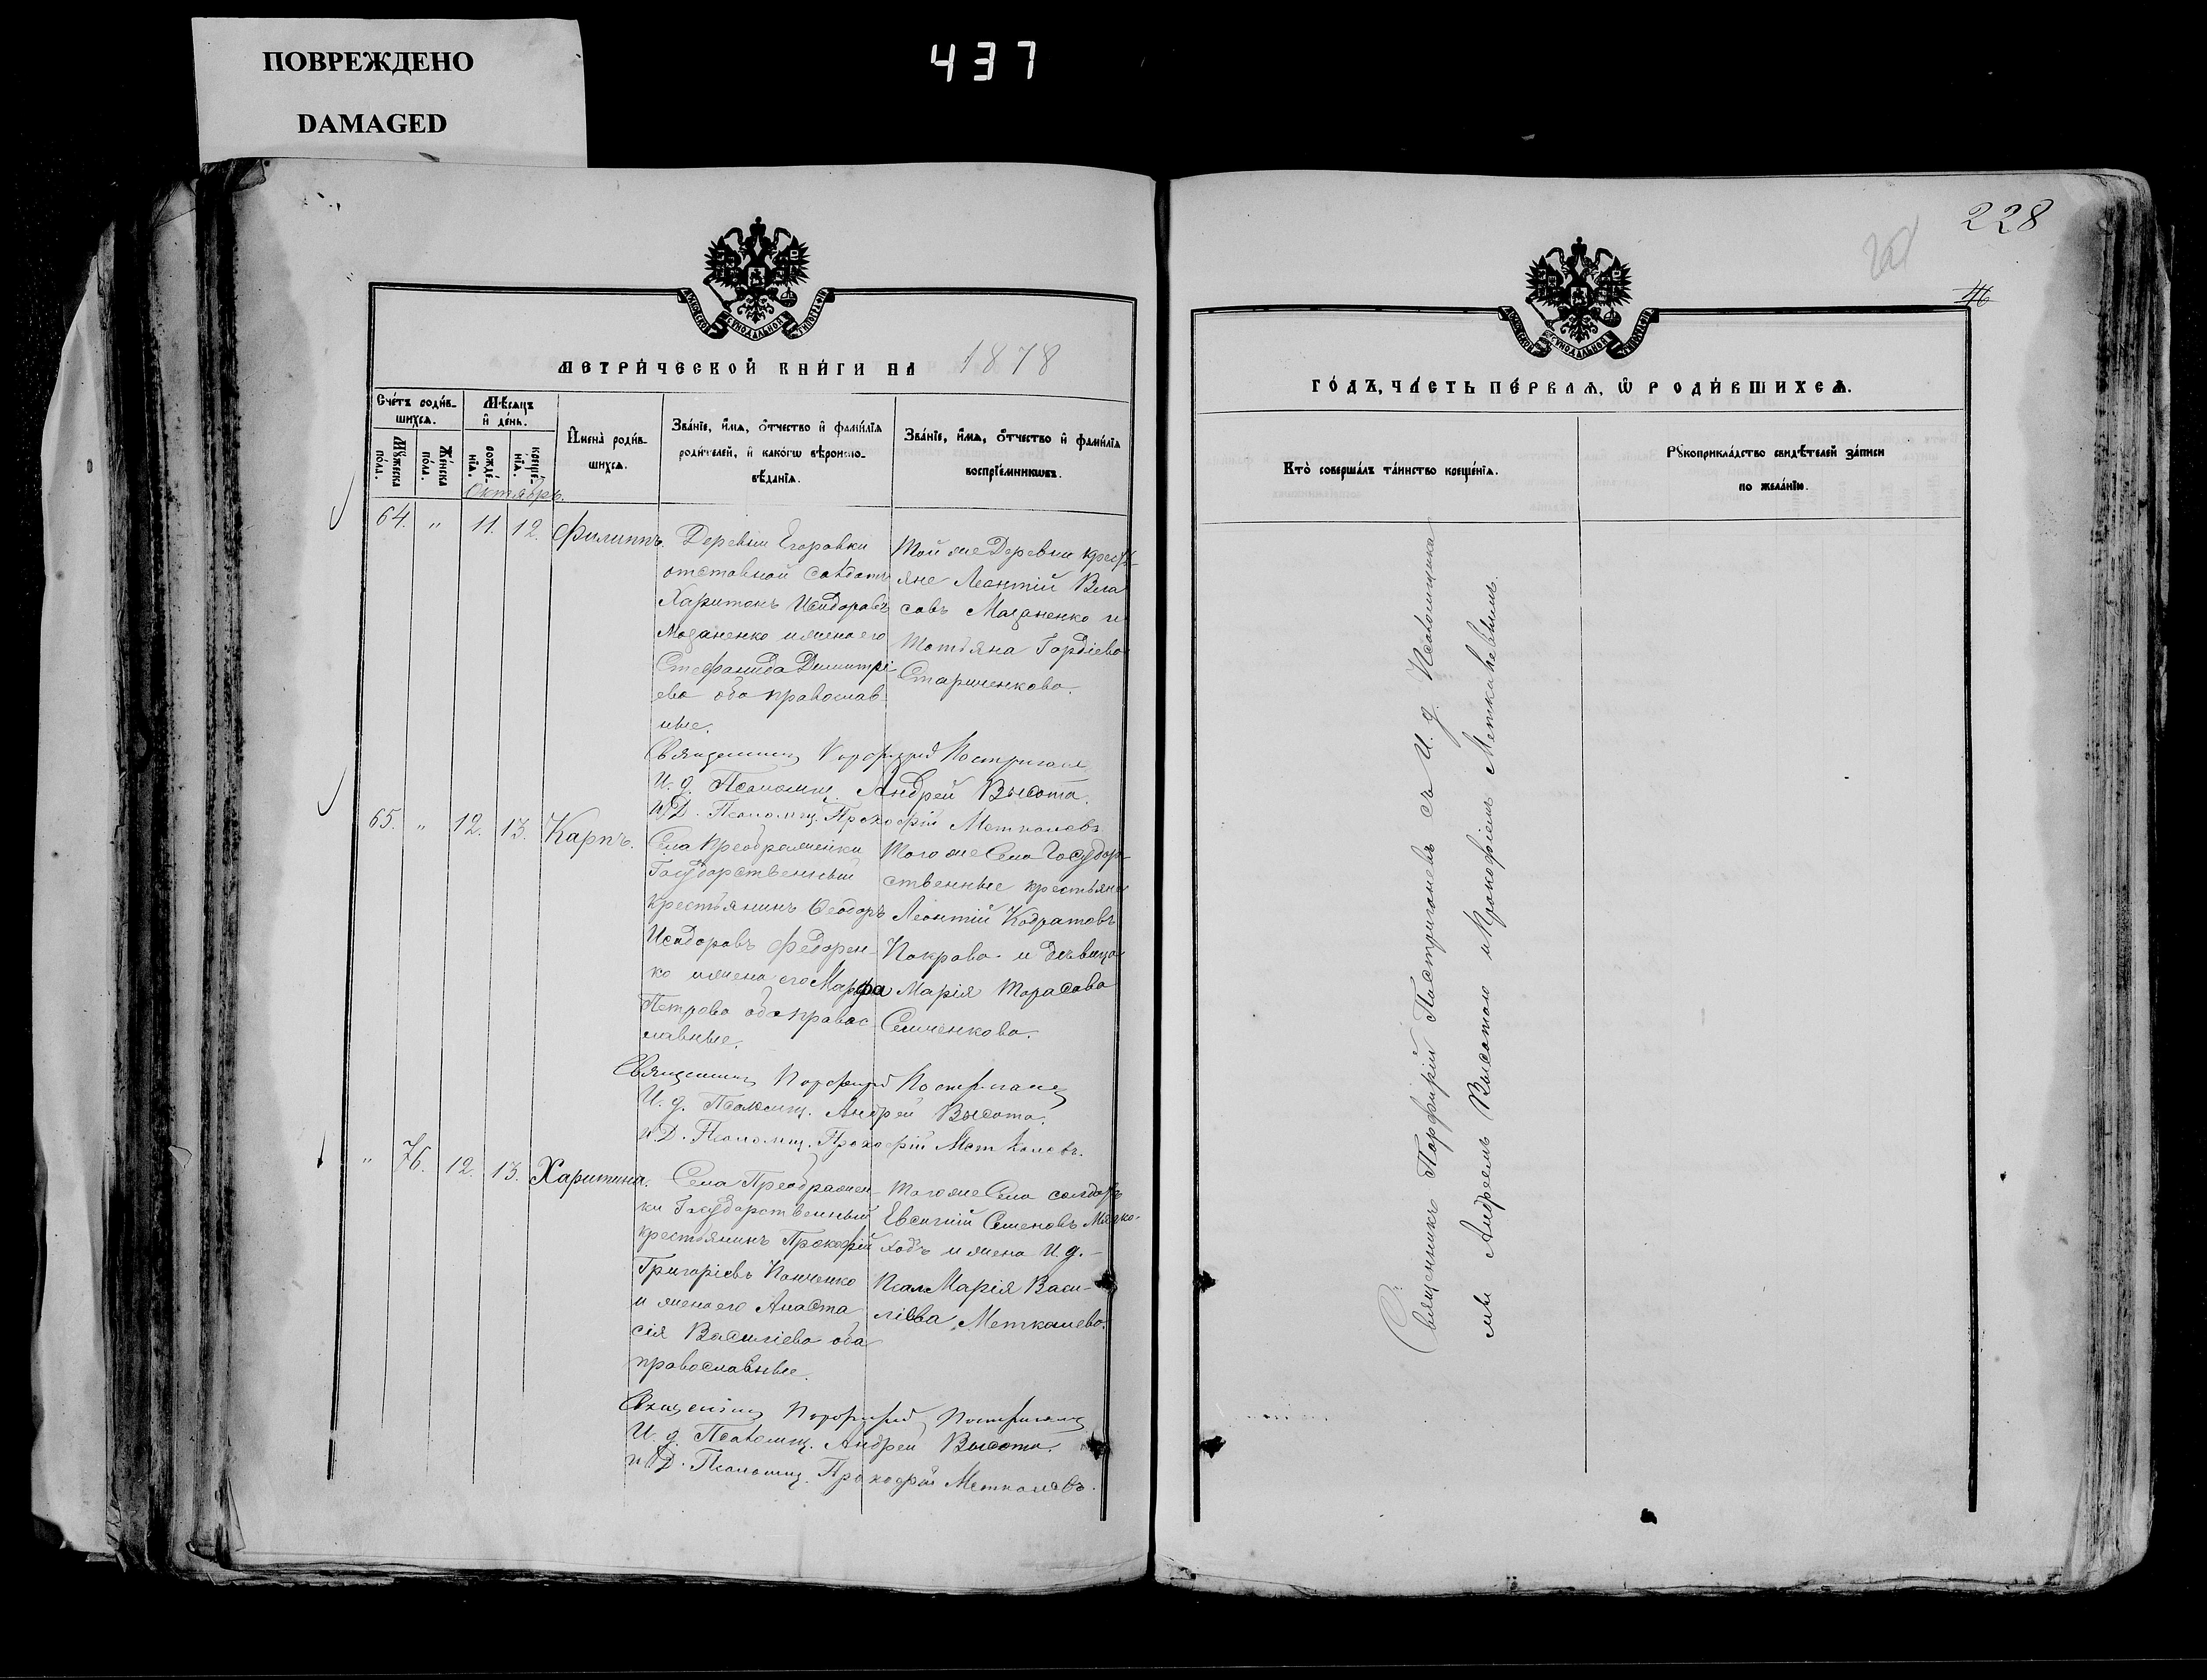 ПОВРЕЖДЕНО
DAMAGED
437
228
46
МЕТРИЧЕСКОЙ КНИГИ НА 1878
ГОДЪ, ЧАСТЬ ПЕРВАЯ, Ѿ РОДИВШИХСЯ.
Счетъ родив-
шихся.
Мужеска пола.
Женска пола.
Мѣсяцъ
и день.
рожде-
нія.
креще-
нія.
Октябрь.
Имена родив-
шихся.
Званіе, имя, отчество и фамилія
родителей, и какогѡ вѣроиспо-
вѣданія.
Званіе, имя, отчество и фамилія
воспріемниковъ.
Кто совершалъ таинство крещенія.
Рукоприкладство свидѣтелей записи
по желанію.
64. " 11. 12. Филиппъ.
Деревни Егоровки
отставной солдатъ
Харитонъ Исидоровъ
Мазаненко и жена его
Стефанида Димитрі-
ева оба православ-
ные.
Той же Деревни кресть-
яне Леонтій Вла
совъ Мазаненко и
Татьяна Гордіева
Стариченкова.
Священникъ Порфирій Постриганев
И. д. Псаломщ. Андрей Высота.
И. Д. Псаломщ. Прокофій Меткалевъ
65. " 12. 13. Карпъ.
Села Преображенки
Государственный
крестьянинъ Ѳеодоръ
Исидоровъ Федорен-
ко и жена его Марфа
Петрова оба правос-
лавные.
Того же Села Государ-
ственные крестьяне
Леонтій Кодратовъ
Покрова и дѣвица
Марія Тарасова
Семченкова.
Священникъ Порфирій Постриганев
И. д. Псаломщ. Андрей Высота.
И. Д. Псаломщ. Прокофій Меткалевъ.
" 76. 12. 13. Харитина.
Села Преображен-
ки Государственный
крестьянинъ Прокофій
Григоріевъ Панченко
и жена его Анаста
сія Василіева оба
православные.
Того же Села солдатъ
Евсигній Семеновъ Мягко-
ходъ и жена И. д.
Псал. Марія Васи-
ліева Меткалева.
Священникъ Порфирій Постриганев
И. д. Псаломщ. Андрей Высота.
И. Д. Псаломщ. Прокофій Меткалевъ.
Священникъ Порфирій Постриганевъ съ И. д. Псаломщика
ми Андреемъ Высотою и Прокофіемъ Меткалевымъ.